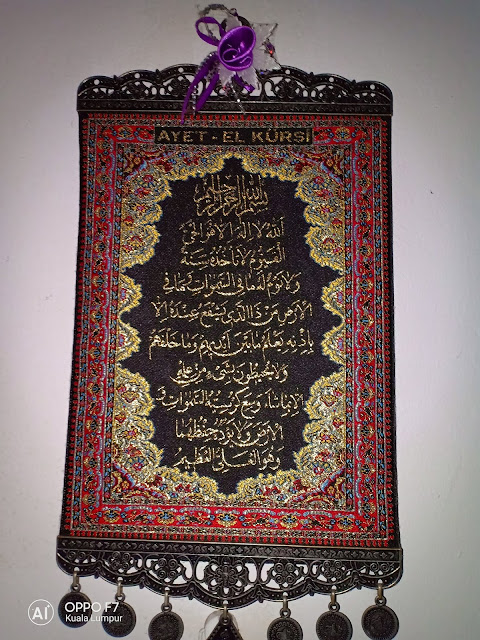 AYET - EL KÜRSİ
بسم الله الرحمن الرحيم
الله لا اله الا هو الحي
القيوم لا تأخذه سنة
ولا نوم له ما في السموات وما في
الارض من ذا الذي يشفع عنده الا
باذنه يعلم ما بين ايديهم وما خلفهم
ولا يحيطون بشيء من علمه
الا بما شاء وسع كرسيه السموات و
الارض ولا يؤده حفظهما
وهو العلي العظيم
AI OPPO F7
Kuala Lumpur